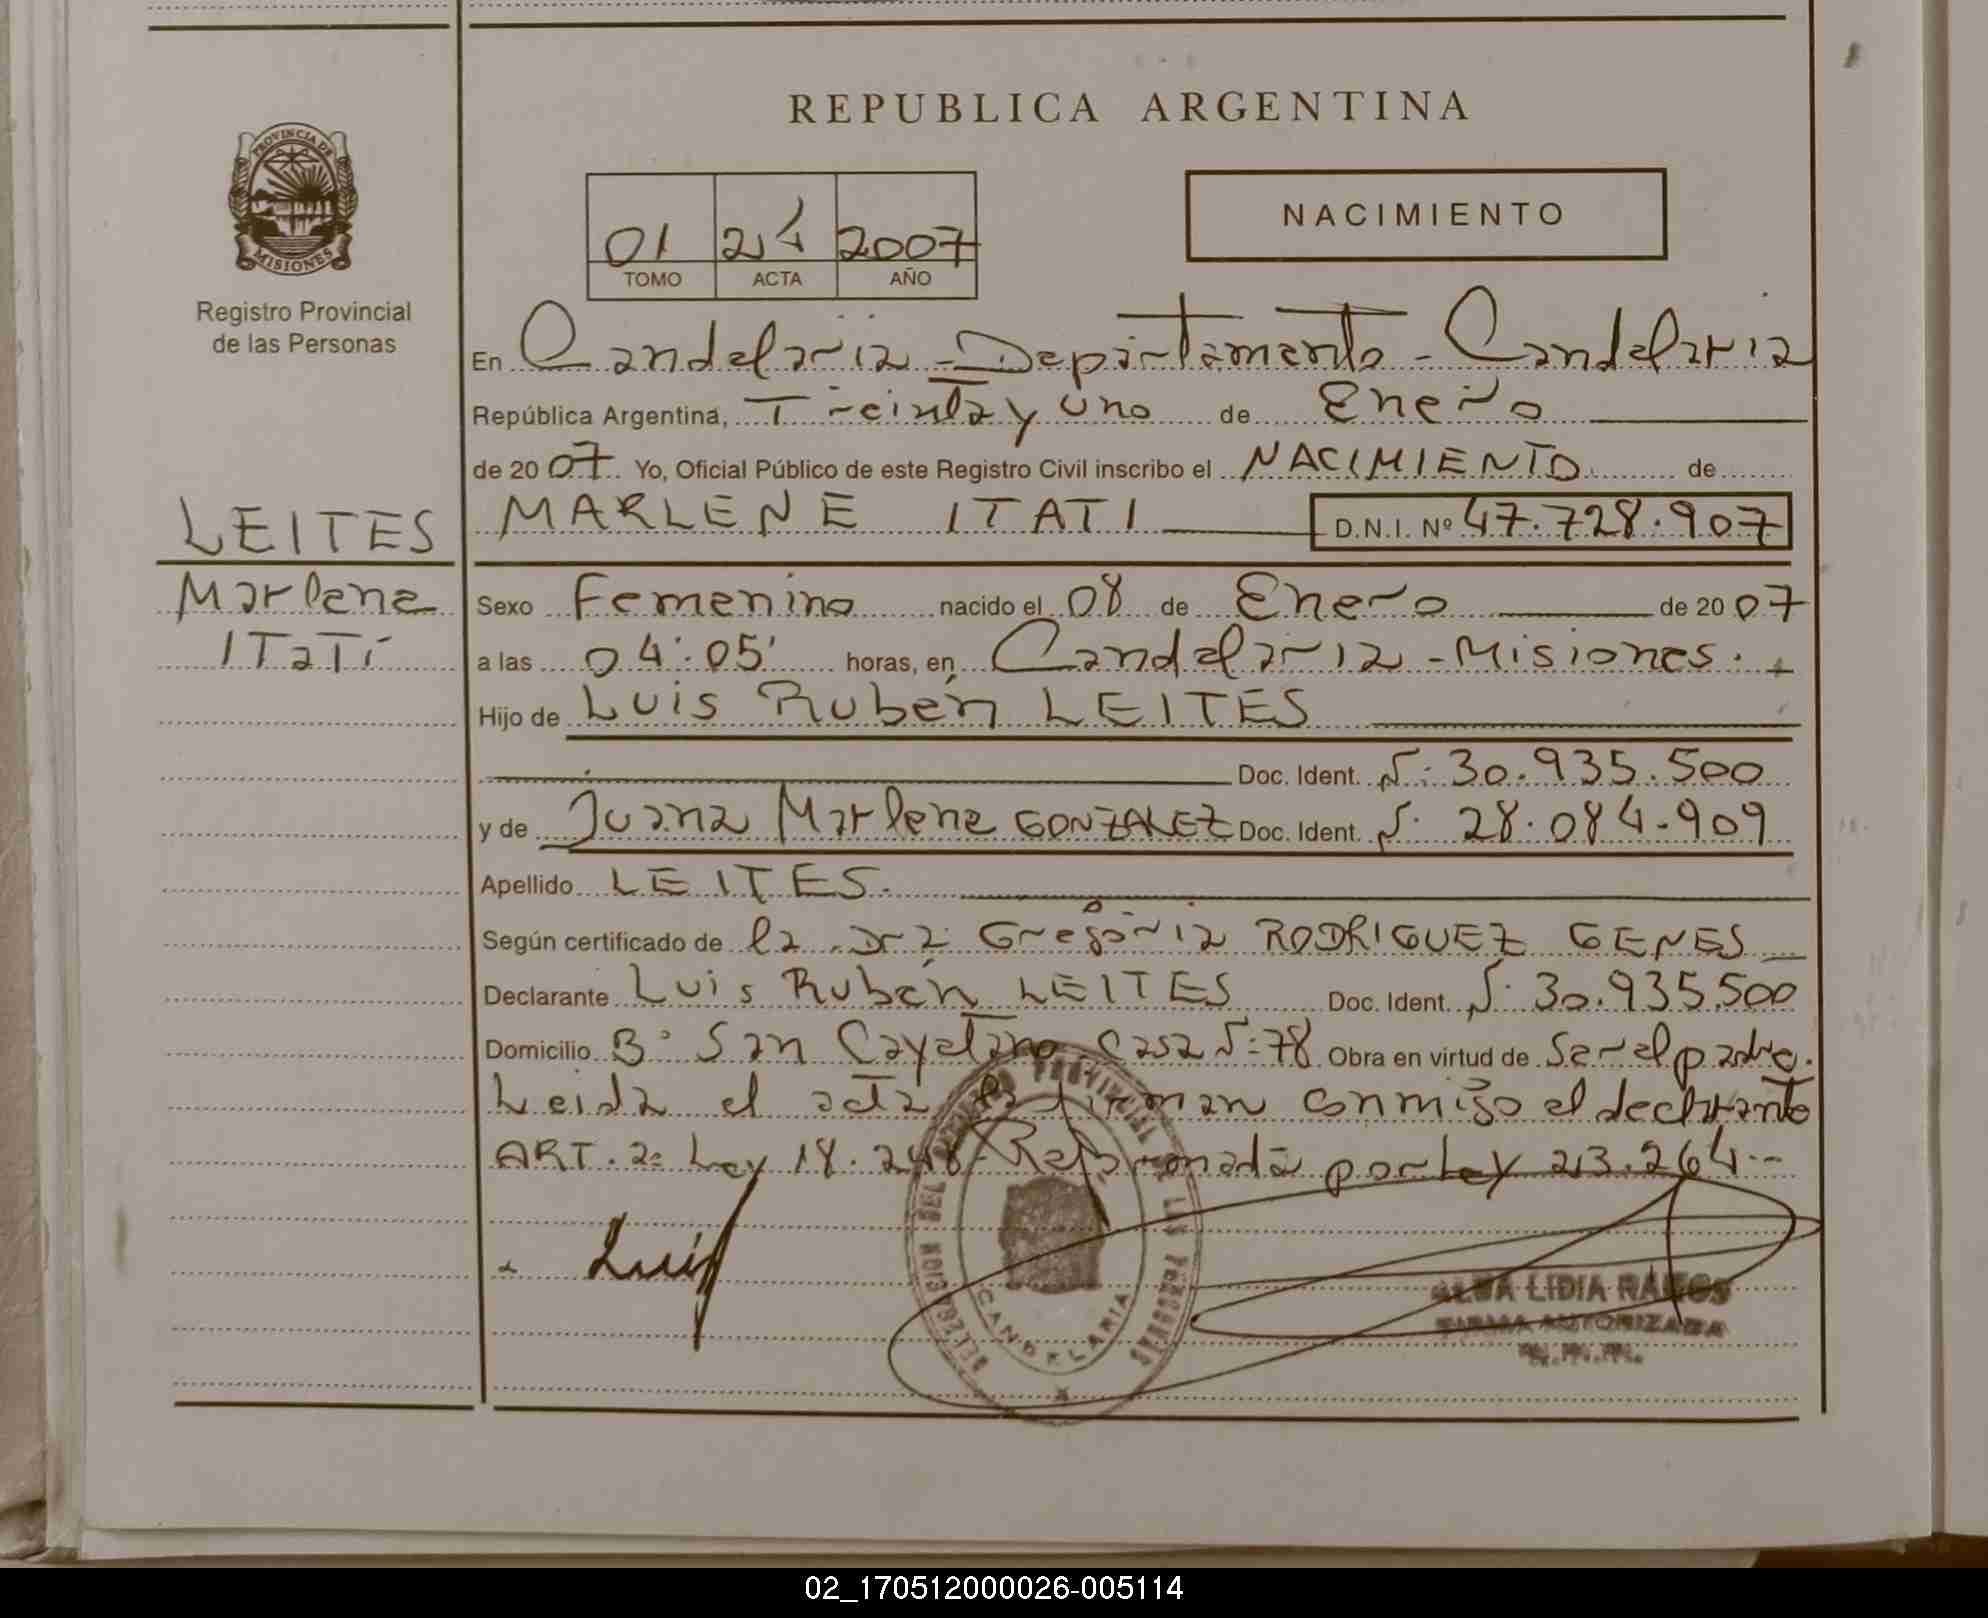 REPUBLICA ARGENTINA
PROVINCIA DE
MISIONES
Registro Provincial
de las Personas
NACIMIENTO
01 24 2007
TOMO ACTA AÑO
En Candelaria - Departamento - Candelaria
República Argentina, Treinta y uno de Enero
de 2007 Yo, Oficial Público de este Registro Civil inscribo el NACIMIENTO de
MARLENE ITATI D.N.I. Nº 47.728.907
LEITES
Marlene
ITaTí
Sexo Femenino nacido el 08 de Enero de 2007
a las 04:05' horas, en Candelaria - Misiones.
Hijo de Luis Rubén LEITES
Doc. Ident. Nº: 30.935.500
y de Juana Marlene GONZALEZ Doc. Ident. Nº 28.084.909
Apellido LEITES.
Según certificado de la Dra Gregoria RODRIGUEZ GENES
Declarante Luis Rubén LEITES Doc. Ident. Nº 30.935.500
Domicilio Bº San Cayetano Casa Nº 78 Obra en virtud de Ser el padre.
Leida el acta la firman conmigo el declarante
ART. 2º Ley 18.248 Reformada por Ley 23.264.-
Luis
DELEGACION DEL REGISTRO PROVINCIAL DE LAS PERSONAS
CANDELARIA
ALBA LIDIA RAMOS
FIRMA AUTORIZADA
02_170512000026-005114